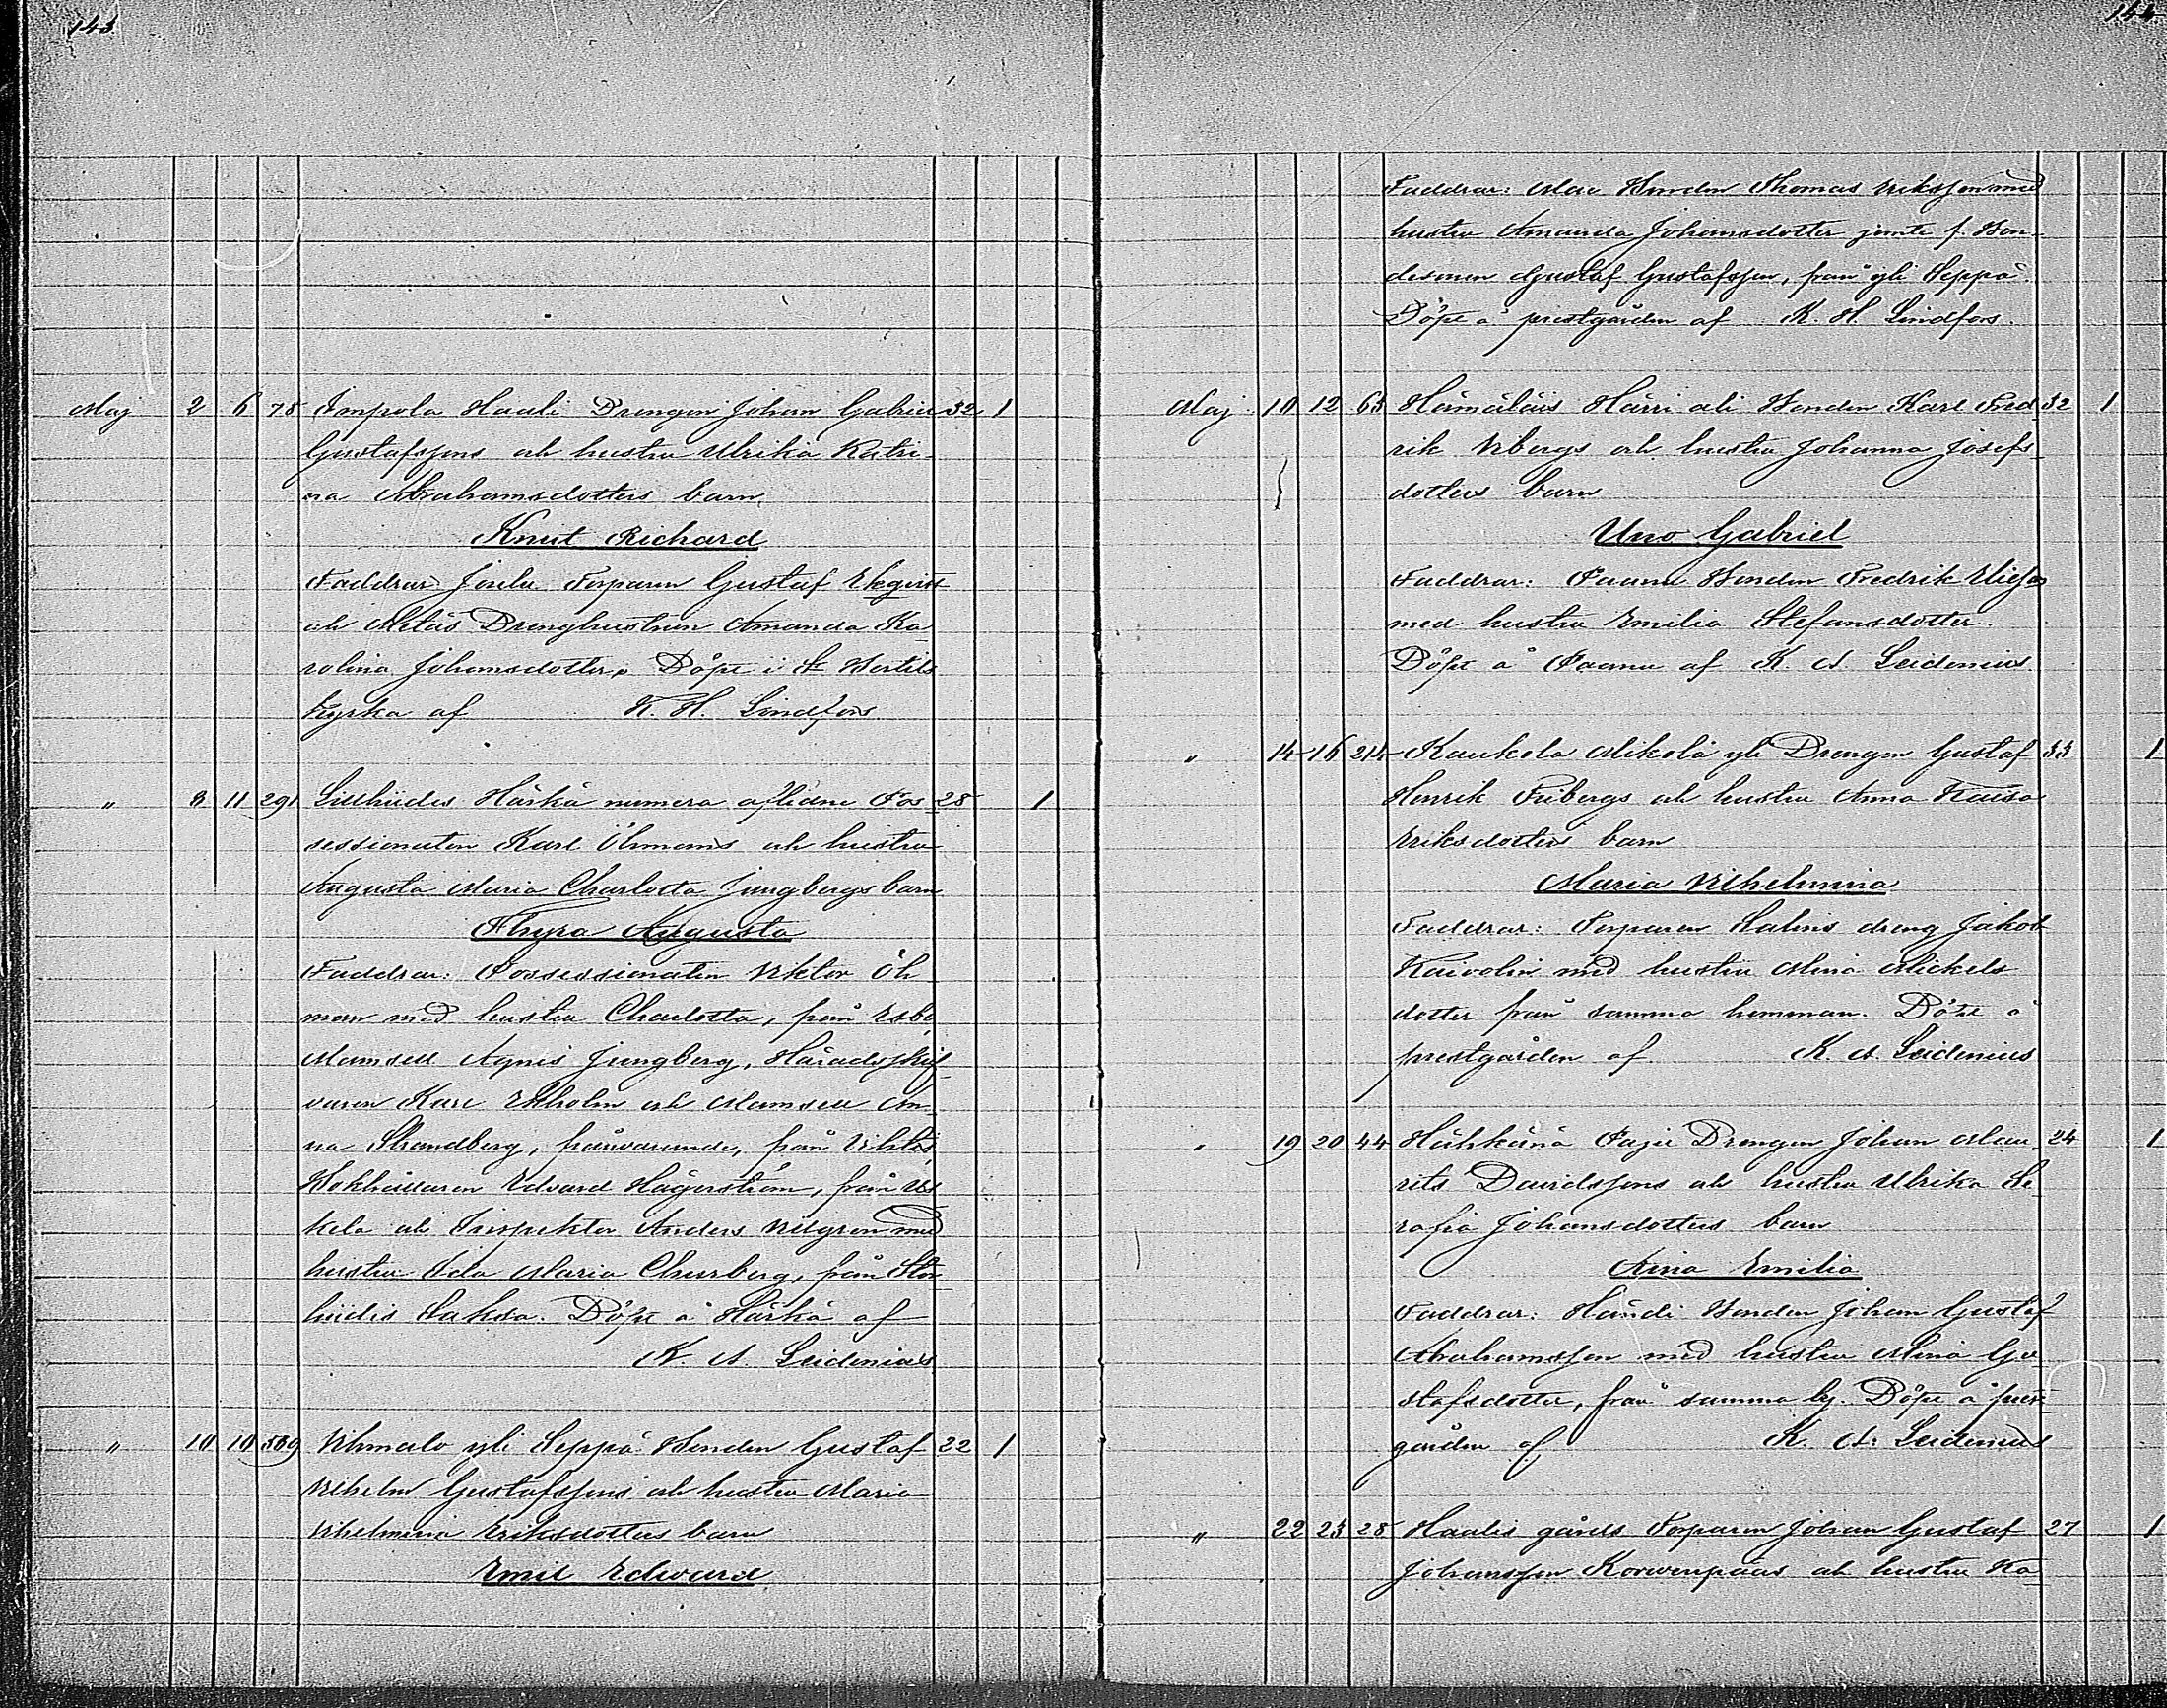 143.
Maj 2 6 78 Impola Haali Drengen Johan Gabriel 32 1
Gustafssons och hustru Ulrika Katri-
na Abrahamsdotters barn
Knut Richard
Faddrar: Torparen Gustaf Ekqvist
och Drenghustrun Amanda Ka
rolina Johansdotter. Döpt i St Bertils
kyrka af K. H. Lindfors
" 3 11 291 Lillhiides Härkä numera aflidne Pos 28 1
sessionaten Karl Öhmans och hustru
Augusta Maria Charlotta Jungbergs barn
Thyra Augusta
Faddrar: Possessionaten Viktor Öh
man med hustru Charlotta, från Esbo
Mamsell Agnes Jungberg, Häradsskrif
varen Karl Ekholm och Mamsell An-
na Strandberg, frånvarande, från Vihtis,
Bokhållaren Edvard Hägerström, från
kela och Inspektor Anders med
hustru Ida Maria från Stor
hiidis Saksa. Döpt å Härkä af
K. A. Leidenius
" 10 10 509 Vihmalo yli Seppä Bonden Gustaf 22 1
Vilhelm Gustafssons och hustru Maria
Vilhelmina Eriksdotters barn
Emil Edvard
144
Faddrar: Bonden Thomas Eriksson med
hustru Amanda Johansdotter jemte f. Bon-
desonen Gustaf Gustafsson, från yli Seppä.
Döpt å prestgården af K. H. Lindfors.
Maj 10 12 63 Hämäläis Härri ali Bonden Karl Fred 32 1
rik Vibergs och hustru Johanna Josefs-
dotters barn
Uno Gabriel
Faddrar: Paanu Bonden Fredrik
med hustru Emilia Stefansdotter.
Döpt å Paanu af K. A. Leidenius.
" 14 16 214 Kaukola Mikola yli Drengen Gustaf 33 1
Henrik Fribergs och hustru Anna Kaisa
Eriksdotters barn
Maria Vilhelmina
Faddrar: Torparen Salins dreng Jakob
Kaivolin med hustru Mina Mickels
dotter från samma hemman. Döpt å
prestgården af K. A. Leidenius
" 19 20 44 Hähkänä Paju Drengen Johan Mau 24 1
rits Davidssons och hustru Ulrika Se
rafia Johansdotters barn
Aina Emilia
Faddrar: Händi Bonden Johan Gustaf
Abrahamsson med hustru Mina Gu
stafsdotter, från samma by. Döpt å prest
gården af K. A. Leidenius
" 22 23 28 Haalis gårds Torparen Johan Gustaf 27 1
Johansson Korvenpääs och hustru Ka